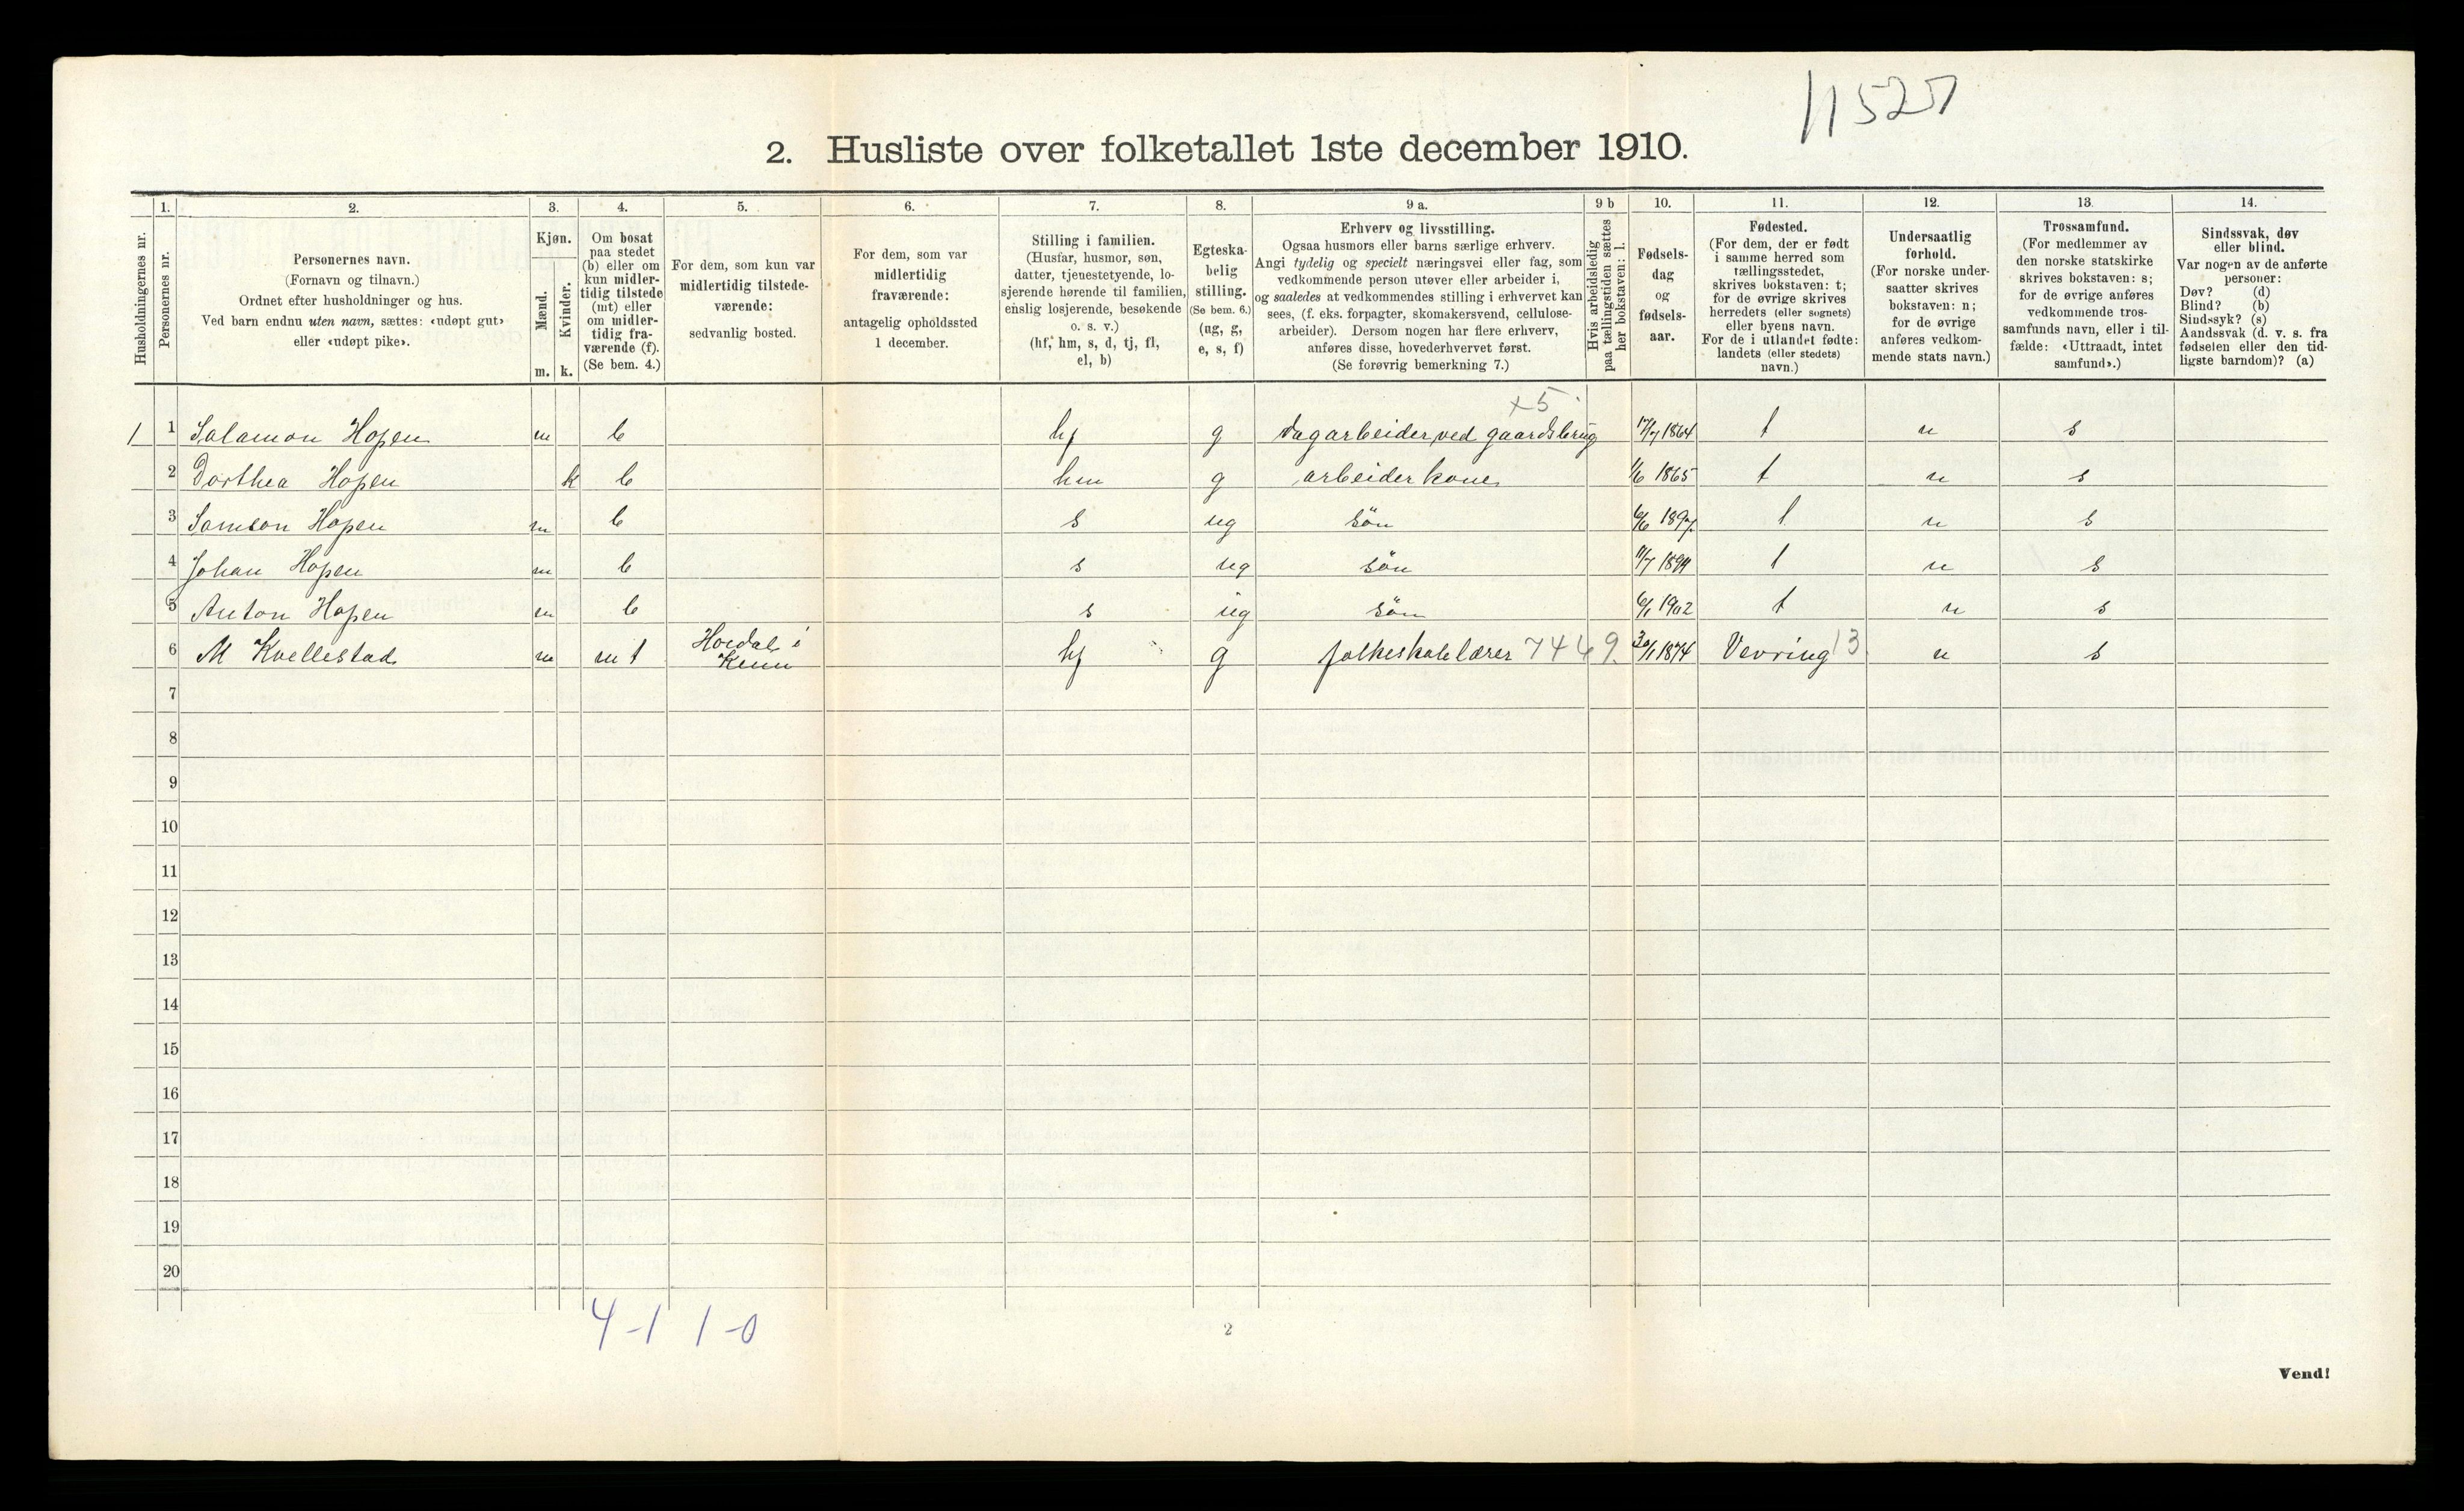 11527
2. Husliste over folketallet 1ste december 1910.
Husholdningernes nr.
1.
Personernes nr.
2.
Personernes navn.
(Fornavn og tilnavn.)
Ordnet efter husholdninger og hus.
Ved barn endnu uten navn, sættes: «udøpt gut»
eller «udøpt pike».
3.
Kjøn.
Mænd.
Kvinder.
m. k.
4.
Om bosat
paa stedet
(b) eller om
kun midler-
tidig tilstede
(mt) eller
om midler-
tidig fra-
værende (f).
(Se bem. 4.)
5.
For dem, som kun var
midlertidig tilstede-
værende:
sedvanlig bosted.
6.
For dem, som var
midlertidig
fraværende:
antagelig opholdssted
1 december.
7.
Stilling i familien.
(Husfar, husmor, søn,
datter, tjenestetyende, lo-
sjerende hørende til familien,
enslig losjerende, besøkende
o. s. v.)
(hf, hm, s, d, tj, fl,
el, b)
8.
Egteska-
belig
stilling.
(Se bem. 6.)
(ug, g,
e, s, f)
9 a.
Erhverv og livsstilling.
Ogsaa husmors eller barns særlige erhverv.
Angi tydelig og specielt næringsvei eller fag, som
vedkommende person utøver eller arbeider i,
og saaledes at vedkommendes stilling i erhvervet kan
sees, (f. eks. forpagter, skomakersvend, cellulose-
arbeider). Dersom nogen har flere erhverv,
anføres disse, hovederhvervet først.
(Se forøvrig bemerkning 7.)
9 b
Hvis arbeidsledig
paa tællingstiden sættes
her bokstaven: l.
10.
Fødsels-
dag
og
fødsels-
aar.
11.
Fødested.
(For dem, der er født
i samme herred som
tællingsstedet,
skrives bokstaven: t;
for de øvrige skrives
herredets (eller sognets)
eller byens navn.
For de i utlandet fødte:
landets (eller stedets)
navn.)
12.
Undersaatlig
forhold.
(For norske under-
saatter skrives
bokstaven: n;
for de øvrige
anføres vedkom-
mende stats navn.)
13.
Trossamfund.
(For medlemmer av
den norske statskirke
skrives bokstaven: s;
for de øvrige anføres
vedkommende tros-
samfunds navn, eller i til-
fælde: «Uttraadt, intet
samfund».)
14.
Sindssvak, døv
eller blind.
Var nogen av de anførte
personer:
Døv? (d)
Blind? (b)
Sindssyk? (s)
Aandssvak (d. v. s. fra
fødselen eller den tid-
ligste barndom)? (a)
x5
1 1 Salamon Hopen m b hf g dagarbeider ved gaardsbrug 17/7 1864 t n s
2 Dorthea Hopen k b hm g arbeiderkone 1/6 1865 t n s
3 Samson Hopen m b s ug søn 6/6 1897 t n s
4 Johan Hopen m b s ug søn 11/7 1899 t n s
5 Anton Hopen m b s ug søn 6/1 1902 t n s
6 M Kvellestad m mt Hovdal i
Kinn hf g folkeskolelærer 7469. 30/1 1874 Vevring 13 n s
7
8
9
10
11
12
13
14
15
16
17
18
19
20
4-1 1-0
2
Vend!